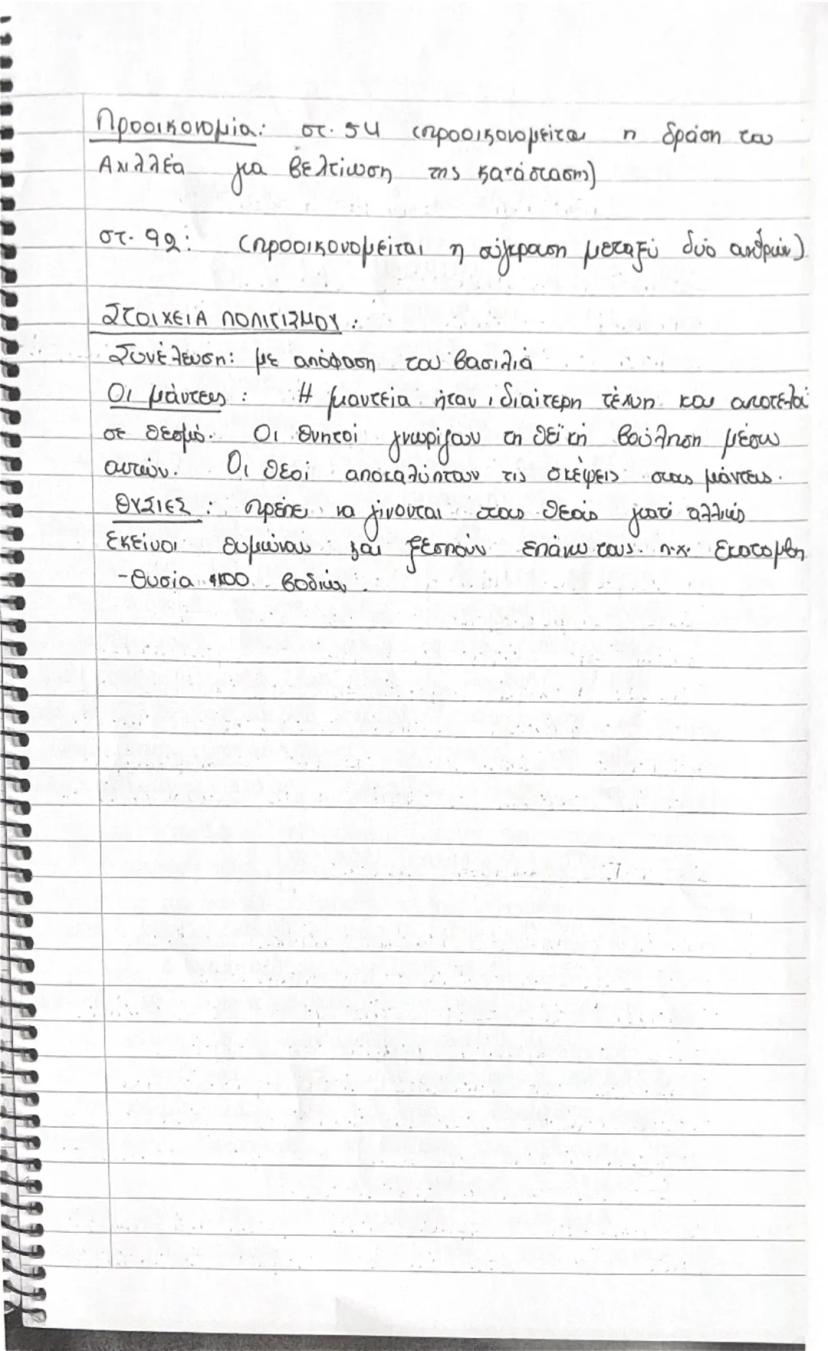 Προοικονομία: στ. 54 (προοικονομείται η δράση του
Αχιλλέα για βελτίωση της κατάστασης)
στ. 92: (προοικονομείται η σύγκρουση μεταξύ δύο ανδρών)
ΣΤΟΙΧΕΙΑ ΠΟΛΙΤΙΣΜΟΥ:
Συνέλευση: με απόφαση του βασιλιά
Οι μάντεις: Η μαντεία ήταν ιδιαίτερη τέχνη και αποτελεί
σε θεσμό. Οι θνητοί γνωρίζαν τη θεϊκή βούληση μέσω
αυτών. Οι θεοί αποκαλύπτουν τις σκέψεις στους μάντεις.
ΘΥΣΙΕΣ: πρέπει να γίνονται στους θεούς γιατί αλλιώς
εκείνοι θυμώνουν και ξεσπούν επάνω τους π.χ. Εκατόμβη
-Θυσία 100 βοδιών.